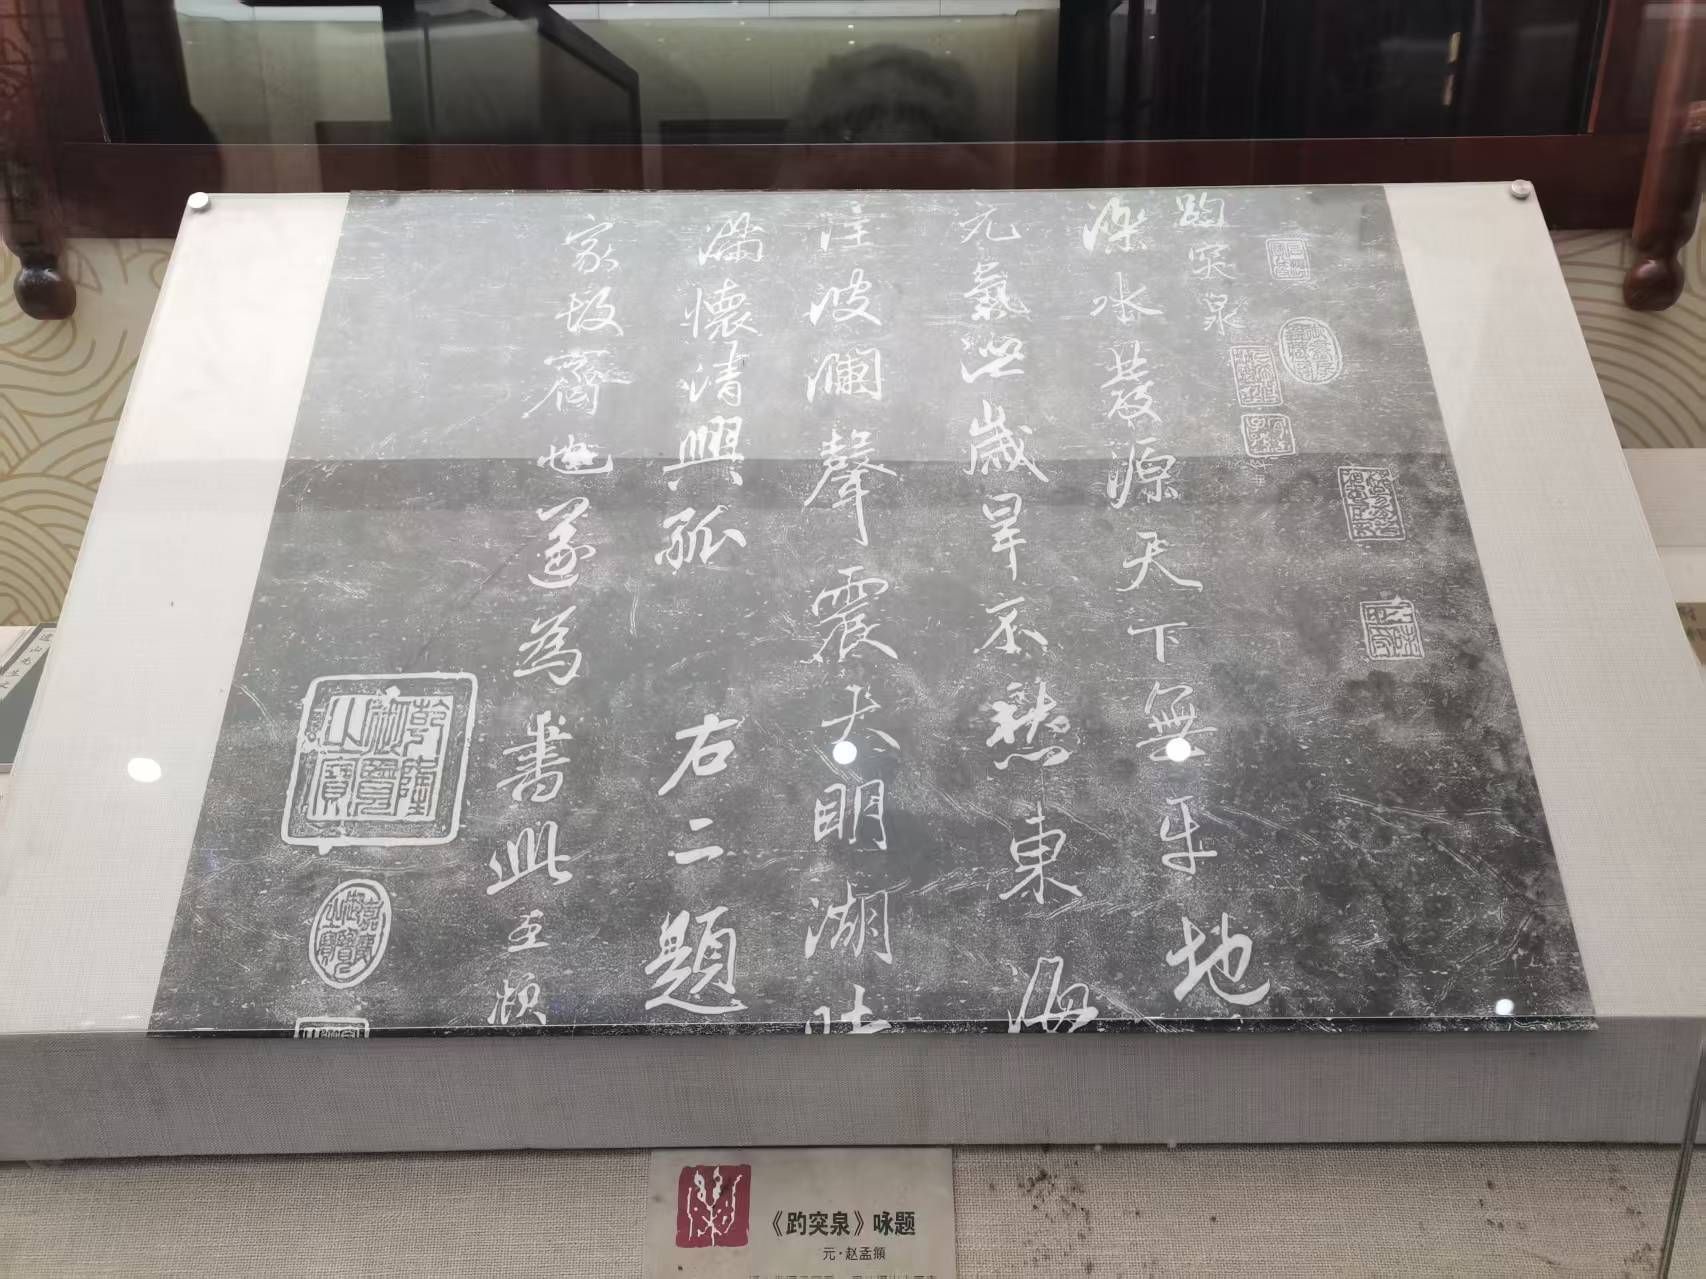 趵突泉
濼水發源天下無平地
元氣泄歲旱不愁東海
注波瀾聲震大明湖
滿懷清興孤 右二題
家故齊也遂為書此孟頫
乾隆御覽之寶
《趵突泉》咏题
元·赵孟頫